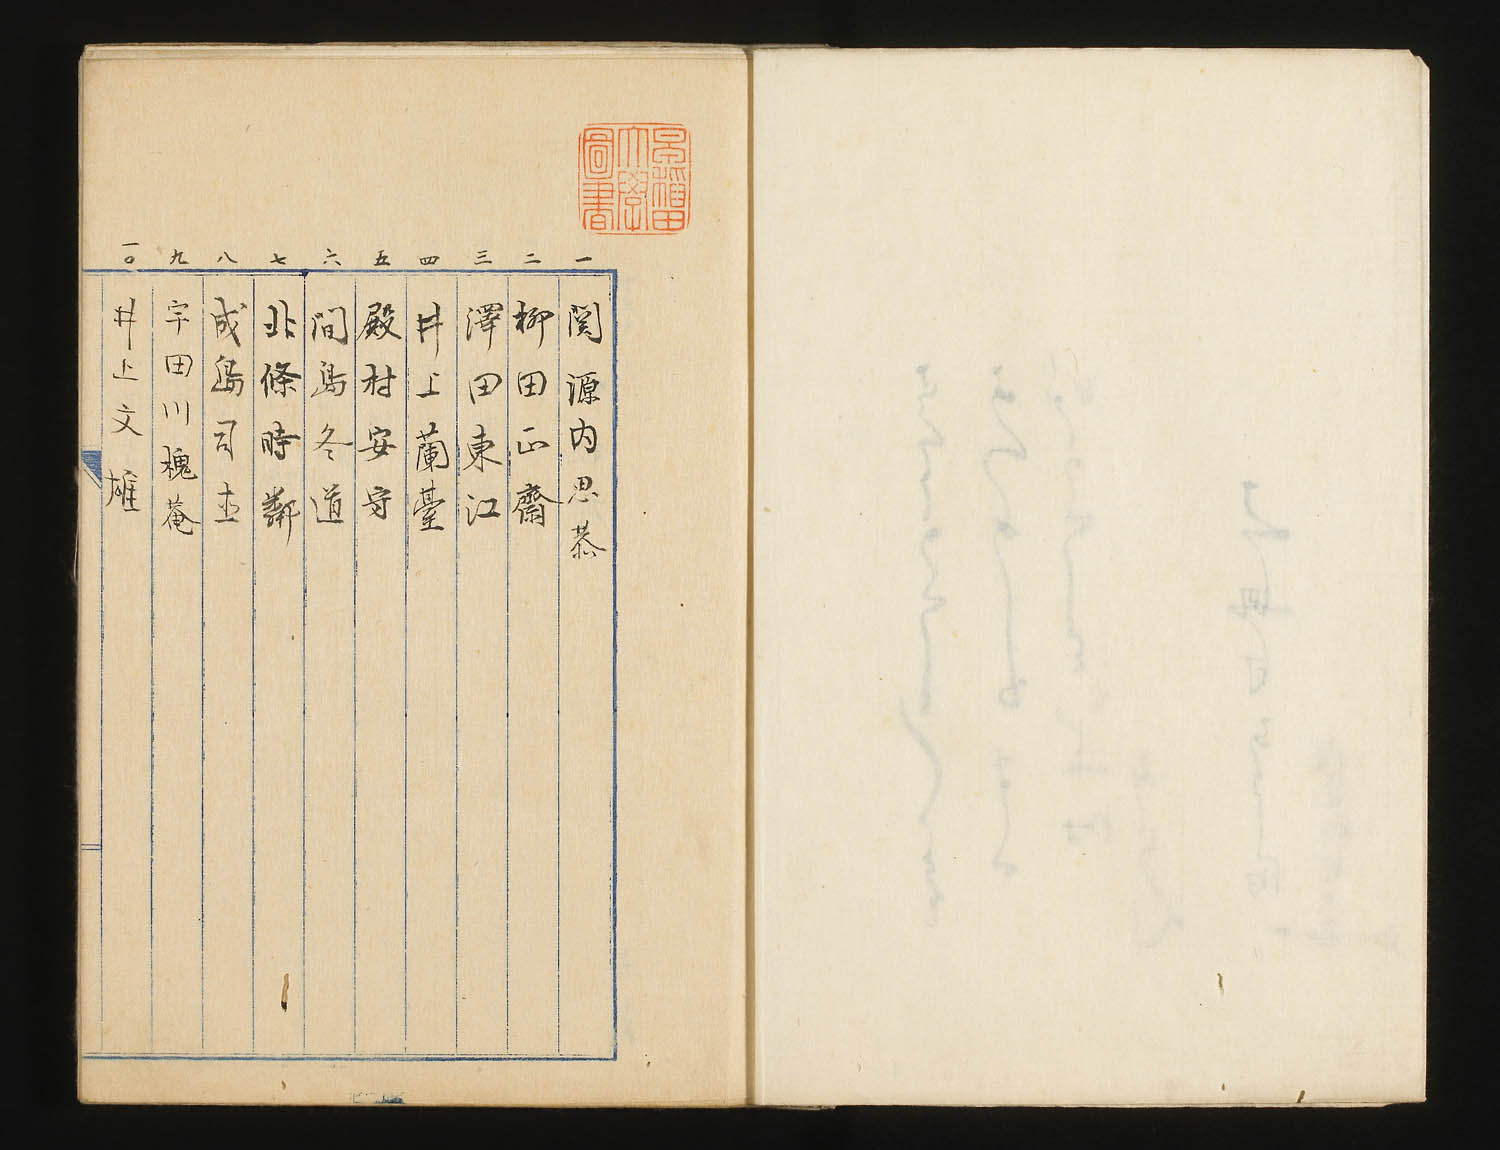 早稲田
大學
圖書
一 関源内思恭
二 柳田正齋
三 澤田東江
四 井上蘭臺
五 殿村安守
六 間島冬道
七 北條時鄰
八 成島司直
九 宇田川槐菴
一〇 井上文雄